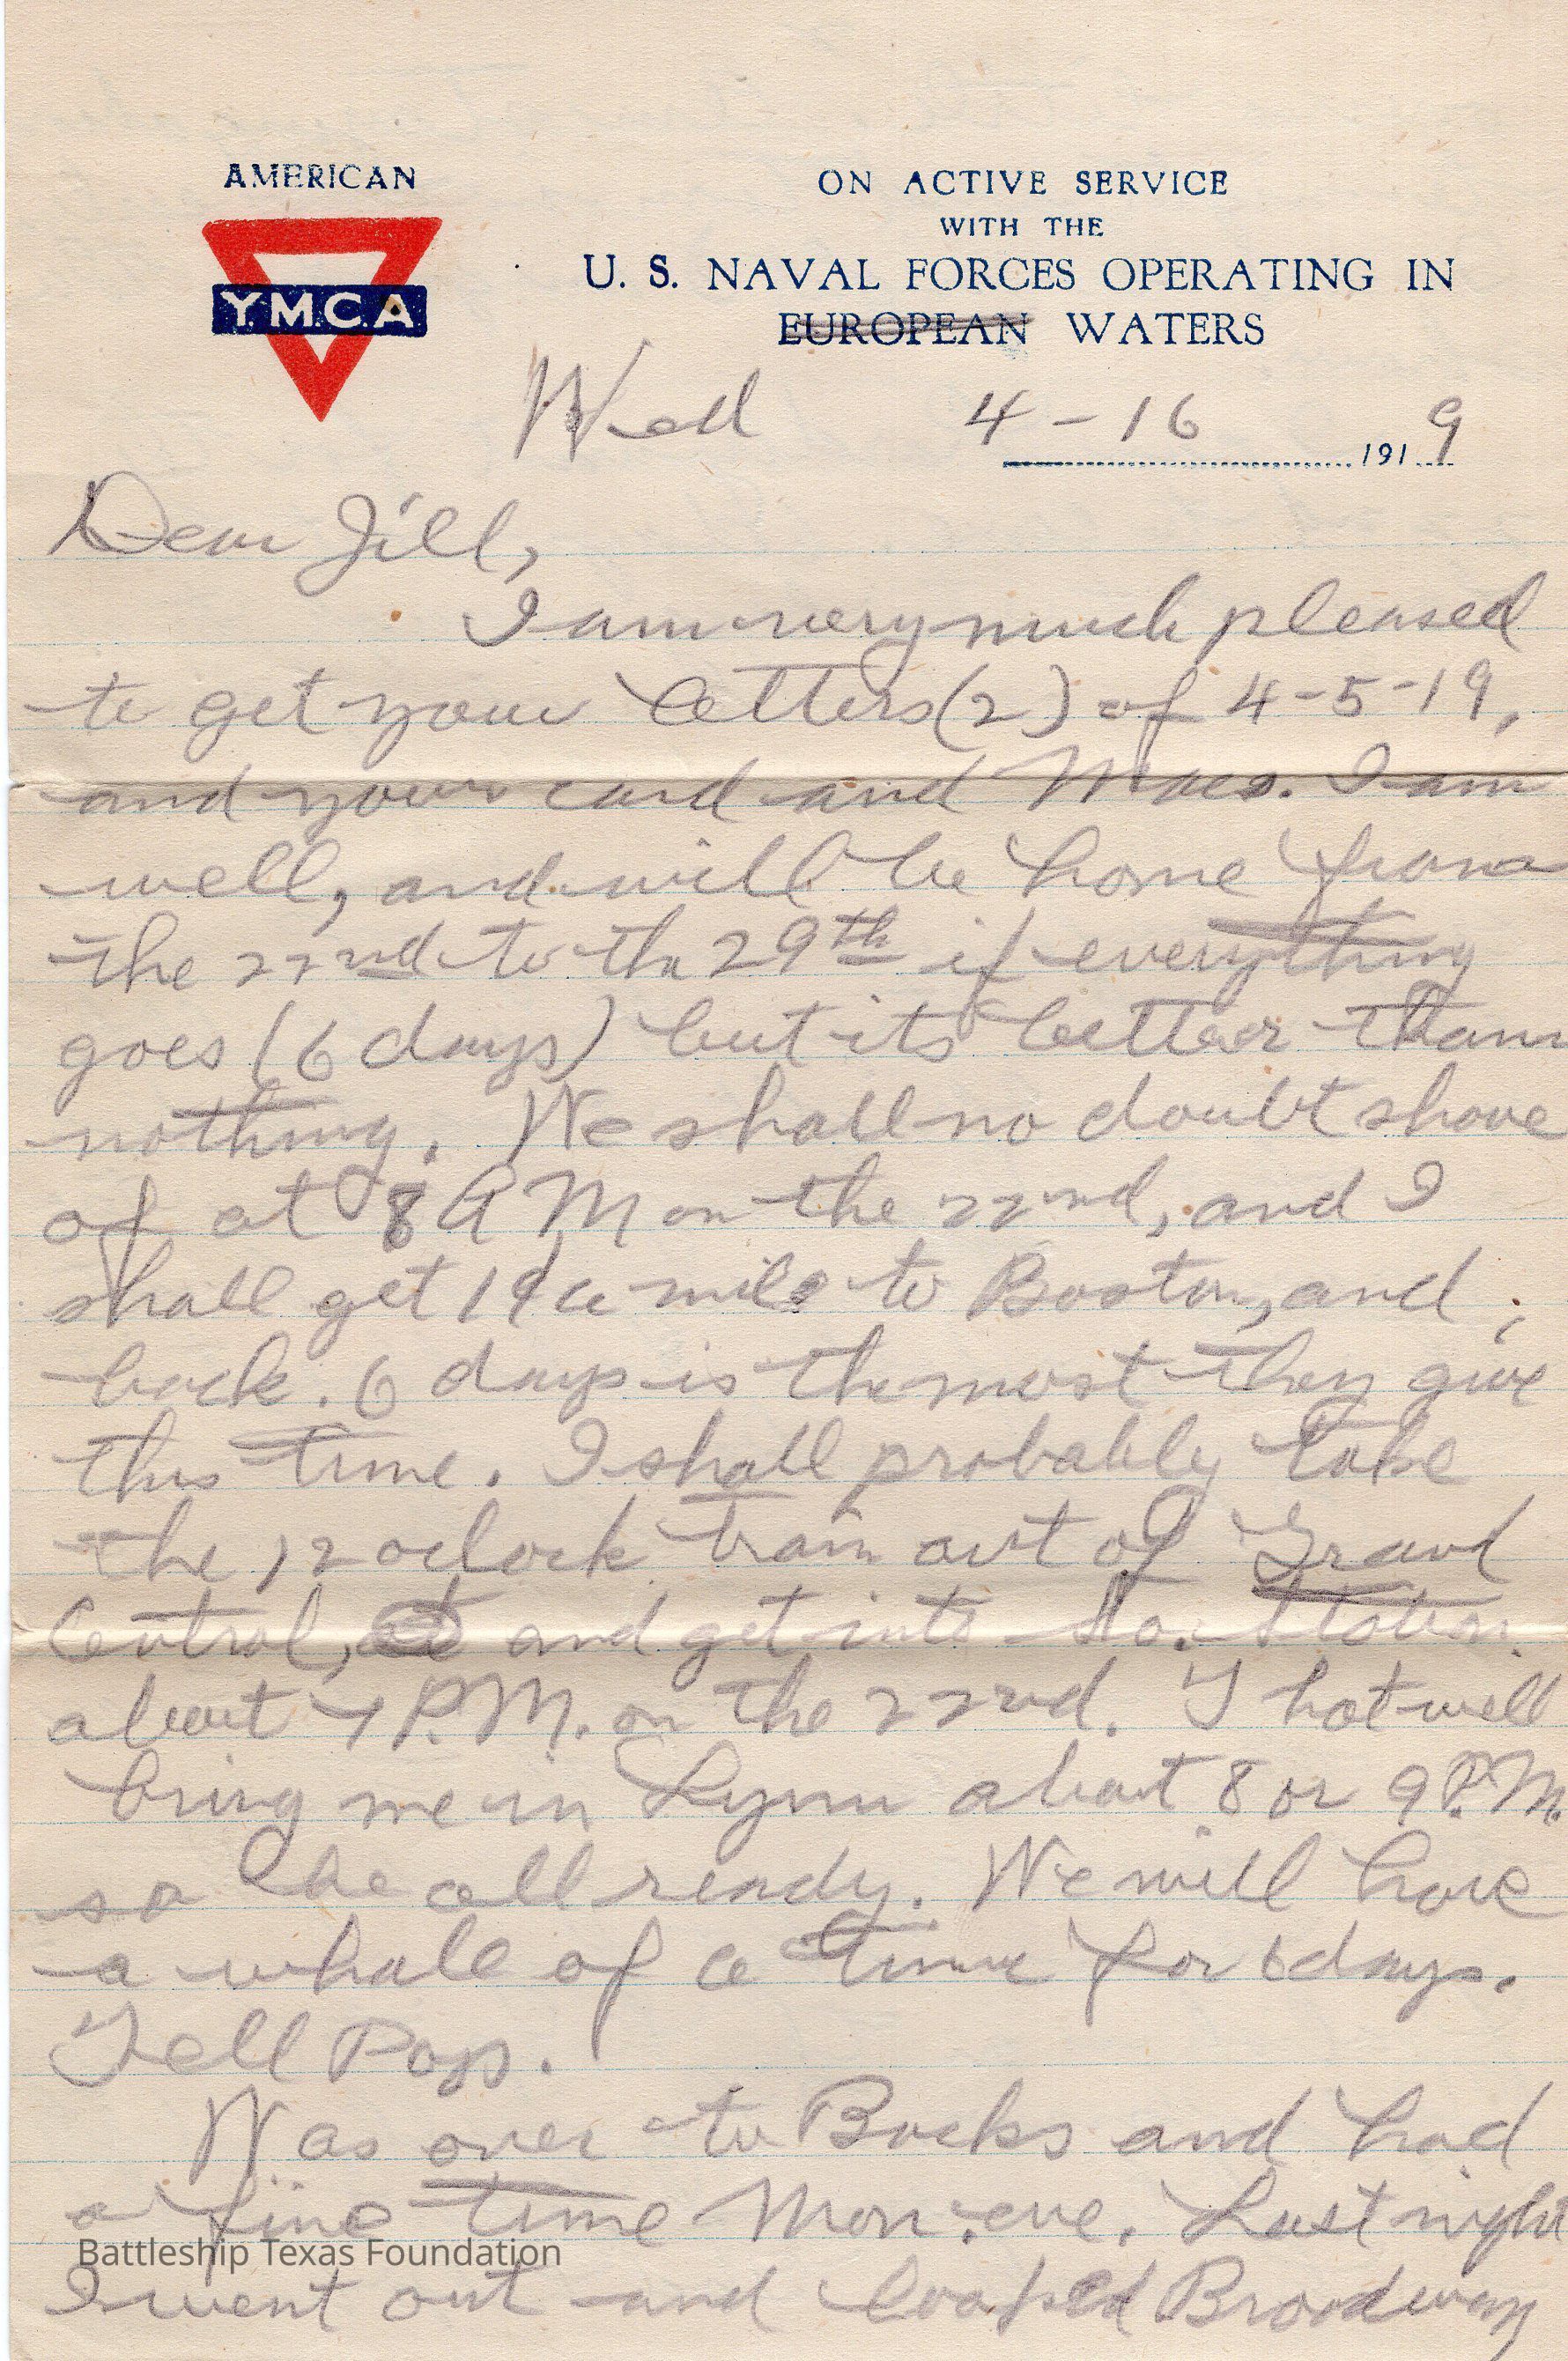 AMERICAN
YMCA
ON ACTIVE SERVICE
WITH THE
U. S. NAVAL FORCES OPERATING IN
EUROPEAN WATERS
Wed 4-16 1919
Dear Jill,
I am very much pleased
to get your letters (2) of 4-5-19,
and your card and Macs. I am
well, and will be home from
the 22nd to the 29th if everything
goes (6 days) but its better than
nothing. We shall no doubt shove
of at 8 AM on the 22nd, and I
shall get 1¢ a mile to Boston, and
back. 6 days is the most they give
this time. I shall probably take
the 12 oclock train out of Grand
Central, and get into So. Station
about 7 P.M. on the 22nd. That will
bring me in Lynn about 8 or 9 P.M.
so be all ready. We will have
a whale of a time for 6 days.
Tell Pop.
Was over to Bucks and had
a fine time Mon. eve. Last night
I went out and looked Broadway
Battleship Texas Foundation